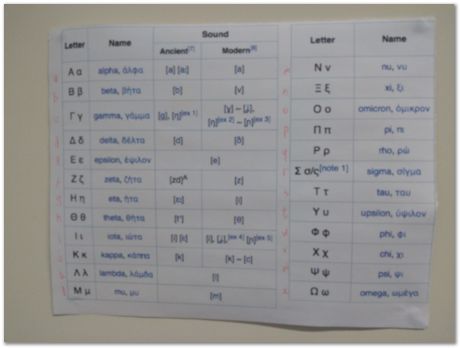 Letter Name Sound Letter Name
Ancient[7] Modern[8]
Α α alpha, άλφα [a] [aː] [a] Ν ν nu, νυ
Β β beta, βήτα [b] [v] Ξ ξ xi, ξι
Γ γ gamma, γάμμα [ɡ], [ŋ][ex 1] [ɣ] ~ [ʝ], Ο ο omicron, όμικρον
[ŋ][ex 2] ~ [ɲ][ex 3]
Δ δ delta, δέλτα [d] [ð] Π π pi, πι
Ε ε epsilon, έψιλον [e] Ρ ρ rho, ρώ
Ζ ζ zeta, ζήτα [zd]A [z] Σ σ/ς[note 1] sigma, σίγμα
Η η eta, ήτα [ɛː] [i] Τ τ tau, ταυ
Θ θ theta, θήτα [tʰ] [θ] Υ υ upsilon, ύψιλον
Ι ι iota, ιώτα [i] [iː] [i], [ʝ],[ex 4] [ɲ][ex 5] Φ φ phi, φι
Κ κ kappa, κάππα [k] [k] ~ [c] Χ χ chi, χι
Λ λ lambda, λάμδα [l] Ψ ψ psi, ψι
Μ μ mu, μυ [m] Ω ω omega, ωμέγα